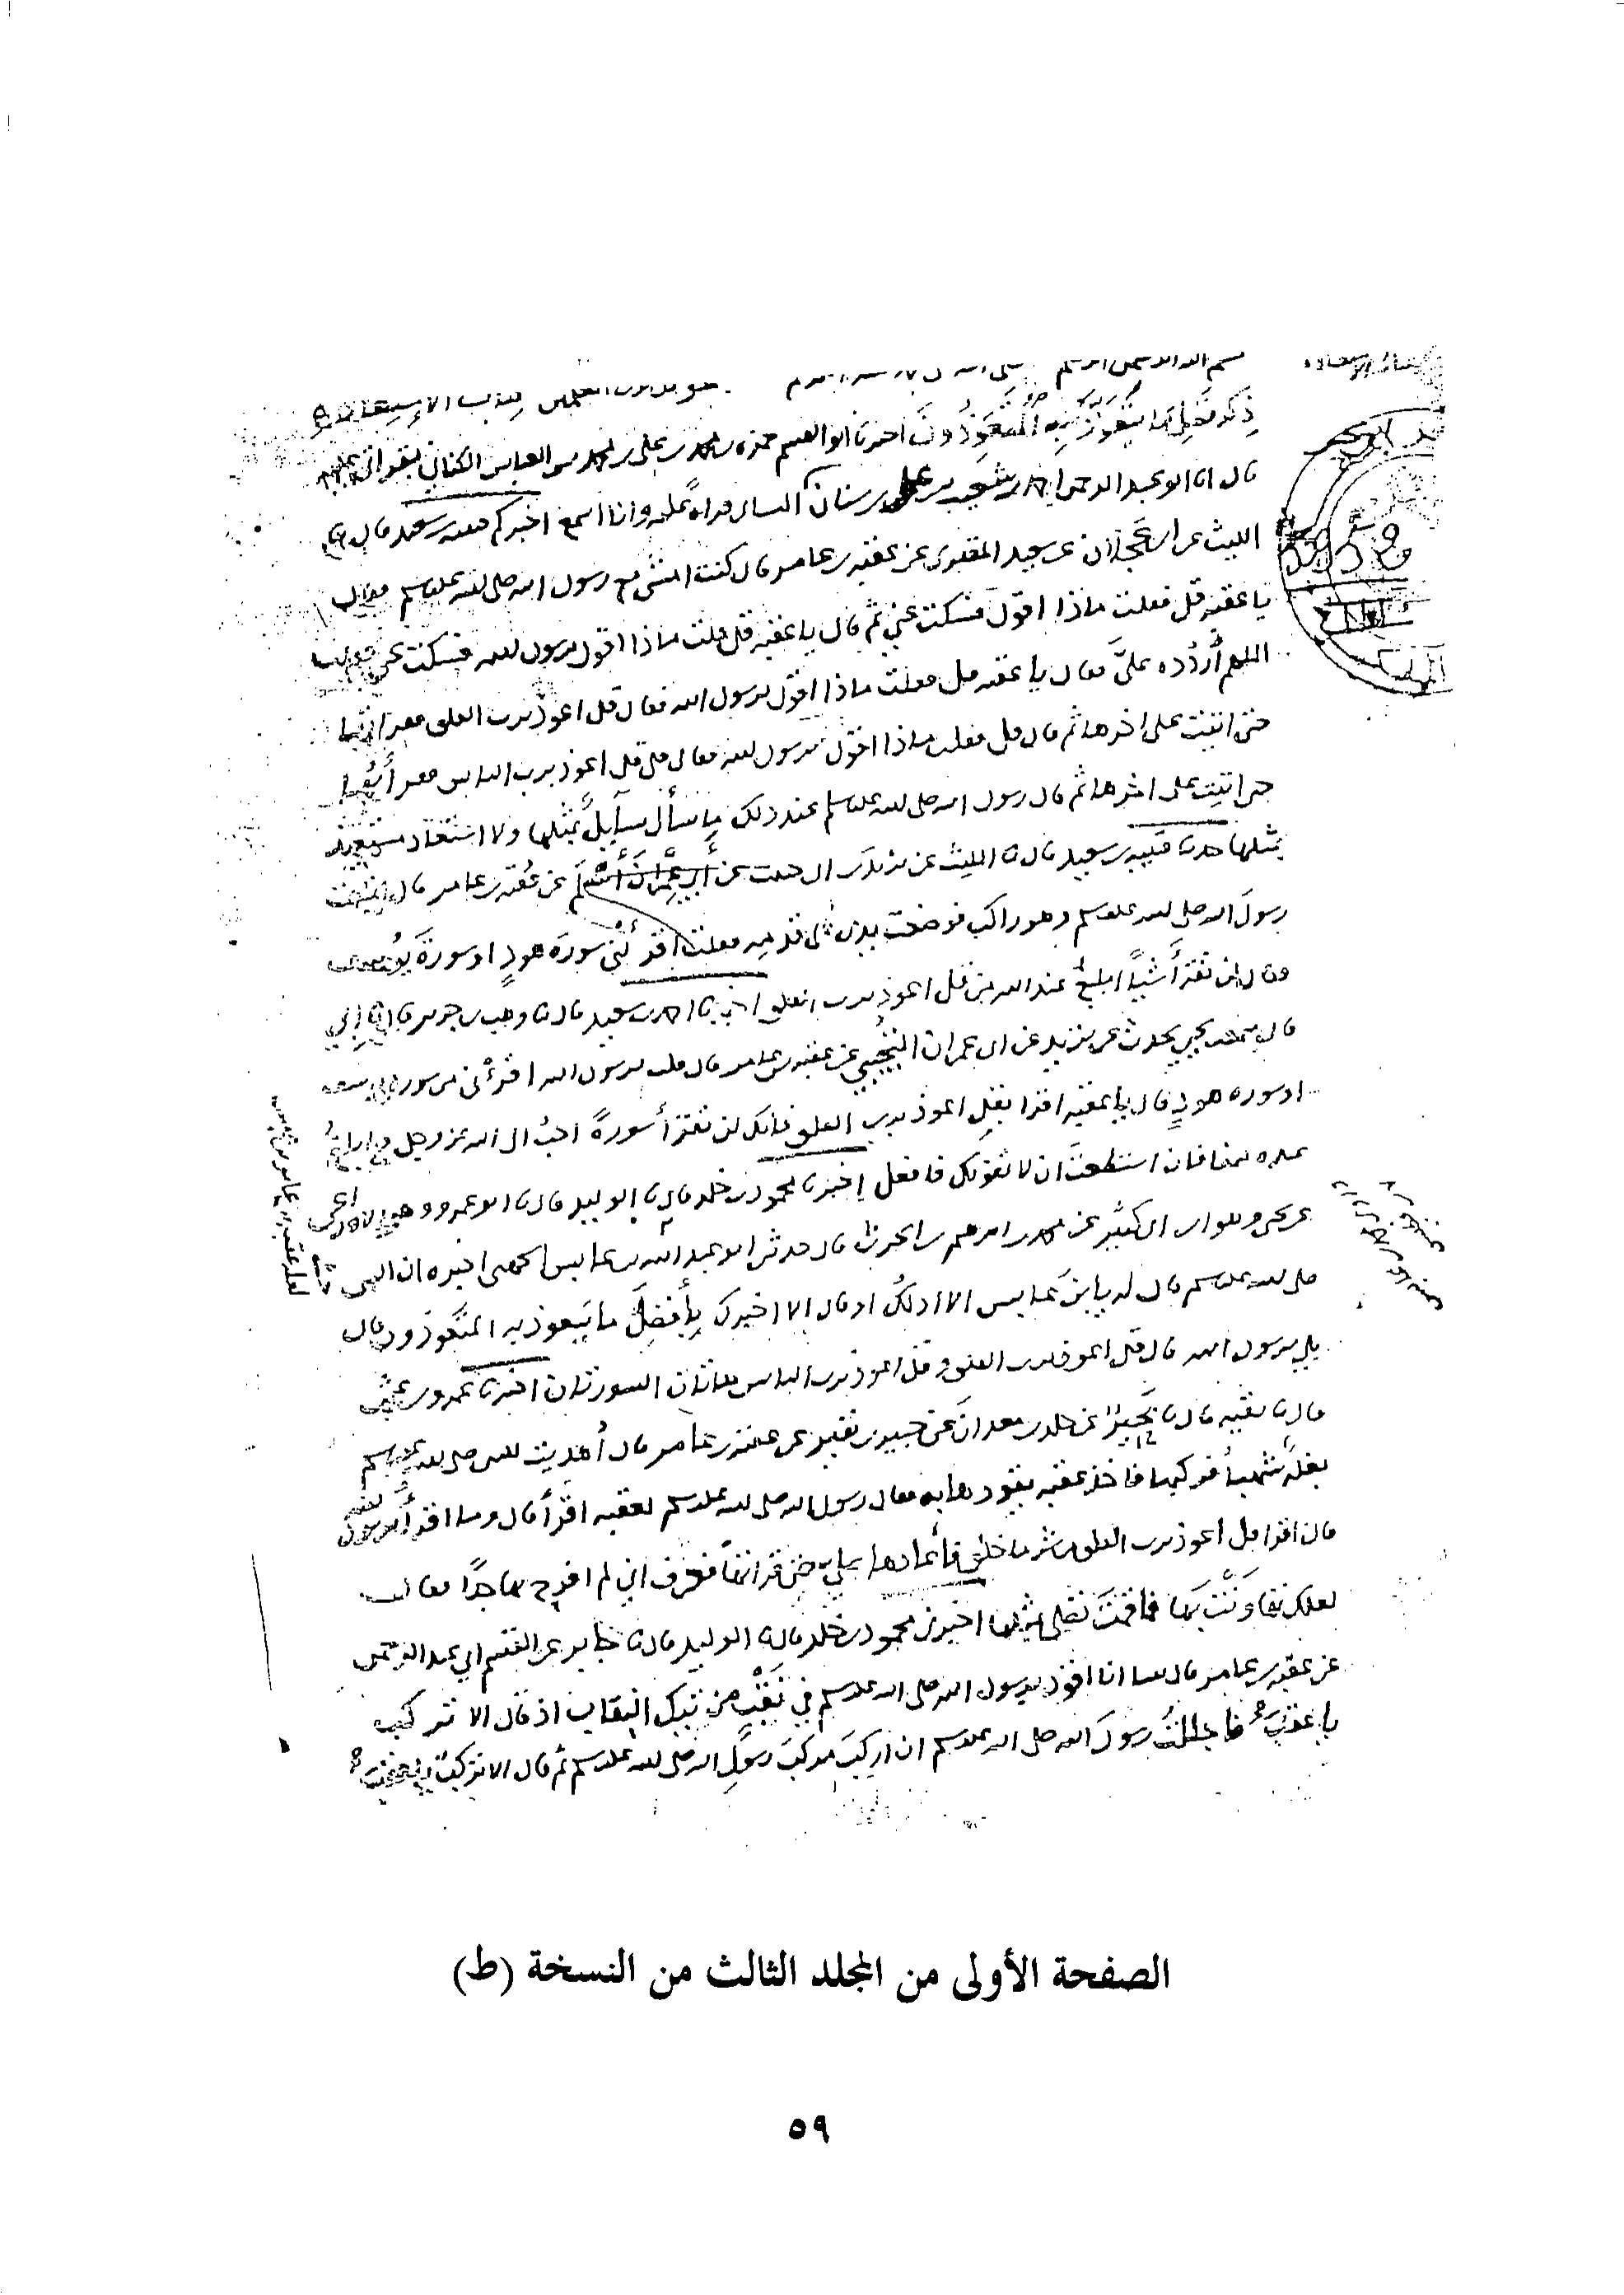 بسم الله الرحمن الرحيم كتاب الإستعاذة
ذكر فضل ما يتعوذ به المتعوذون اخبرنا ابو القسم حمزه بن محمد بن علي بن محمد بن العباس الكناني بقراتي عليه
قال انا ابو عبد الرحمن احمد بن شعيب بن علي بن سنان النسائي قراة عليه وانا اسمع اخبركم قتيبه بن سعيد قال نا
الليث عن ابن عجلان عن سعيد المقبري عن عقبه بن عامر قال كنت امشي مع رسول الله صلى الله عليه وسلم فقال
يا عقبه قل فقلت ماذا اقول فسكت عني ثم قال يا عقبه قل قلت ماذا اقول يرسول الله فسكت عني فقلت
اللهم اردده علي فقال يا عقبه قل فقلت ماذا اقول يرسول الله فقال قل اعوذ برب الفلق فقراتها
حتى اتيت على اخرها ثم قال قل فقلت ماذا اقول يرسول الله فقال قل اعوذ برب الناس فقراتها
حتى اتيت على اخرها ثم قال رسول الله صلى الله عليه وسلم عند ذلك ما سأل سايل بمثلها ولا استعاذ مستعيذ
بمثلها حدثنا قتيبه بن سعيد قال نا الليث عن يزيد بن ابي حبيب عن أبي عمران أسلم عن عقبه بن عامر قال اتيت
رسول الله صلى الله عليه وسلم وهو راكب فوضعت يدي على قدميه فقلت اقرئني سورة هود او سورة يوسف
فقال لن تقرأ شيا ابلغ عند الله من قل اعوذ برب الفلق اخبرنا احمد بن سعيد قال نا وهب بن جرير قال نا ابي
قال سمعت يحيى يحدث عن يزيد عن ابي عمران التجيبي عن عقبه بن عامر قال قلت يرسول الله اقرئني من سورة يوسف
او سوره هود قال يا عقبه اقرا بقل اعوذ برب الفلق فانك لن تقرأ سورة احب الى الله عز وجل وابلغ
عنده منها فان استطعت ان لا تفوتك فافعل اخبرنا محمود بن خلد قال نا الوليد قال نا ابو عمرو وهو الاوزاعي
عن يحيى وهو ابن ابي كثير عن محمد بن ابرهيم بن الحرث قال حدثني ابو عبد الله بن عابس الجهني اخبره ان النبي
صلى الله عليه وسلم قال له يا ابن عابس الا ادلك او قال الا اخبرك بأفضل ما يتعوذ به المتعوذون قال
بلى يرسول الله قال قل اعوذ برب الفلق وقل اعوذ برب الناس هاتان السورتان اخبرنا عمرو بن عثمن
قال نا بقيه قال نا بحير عن خلد بن معدان عن جبير بن نفير عن عقبه بن عامر قال أهديت للنبي صلى الله عليه وسلم
بغلة شهبا فركبها فاخذ عقبه يقودها به فقال رسول الله صلى الله عليه وسلم لعقبه اقرأ قال وما اقرأ يرسول الله
قال اقرا قل اعوذ برب الفلق من شر ما خلق فأعادها علي حتى قراتها فعرف اني لم افرح بها جدا فقال
لعلك تهاونت بها فما قمت تصلي بمثلها اخبرني محمود بن خلد قال نا الوليد قال نا جابر عن القسم ابي عبد الرحمن
عن عقبه بن عامر قال بينا انا اقود برسول الله صلى الله عليه وسلم في نقب من تلك النقاب اذ قال الا تركب
يا عقب فاجللت رسول الله صلى الله عليه وسلم ان اركب مركب رسول الله صلى الله عليه وسلم ثم قال الا تركب يا عقب
الصفحة الأولى من المجلد الثالث من النسخة (ط)
٥٩